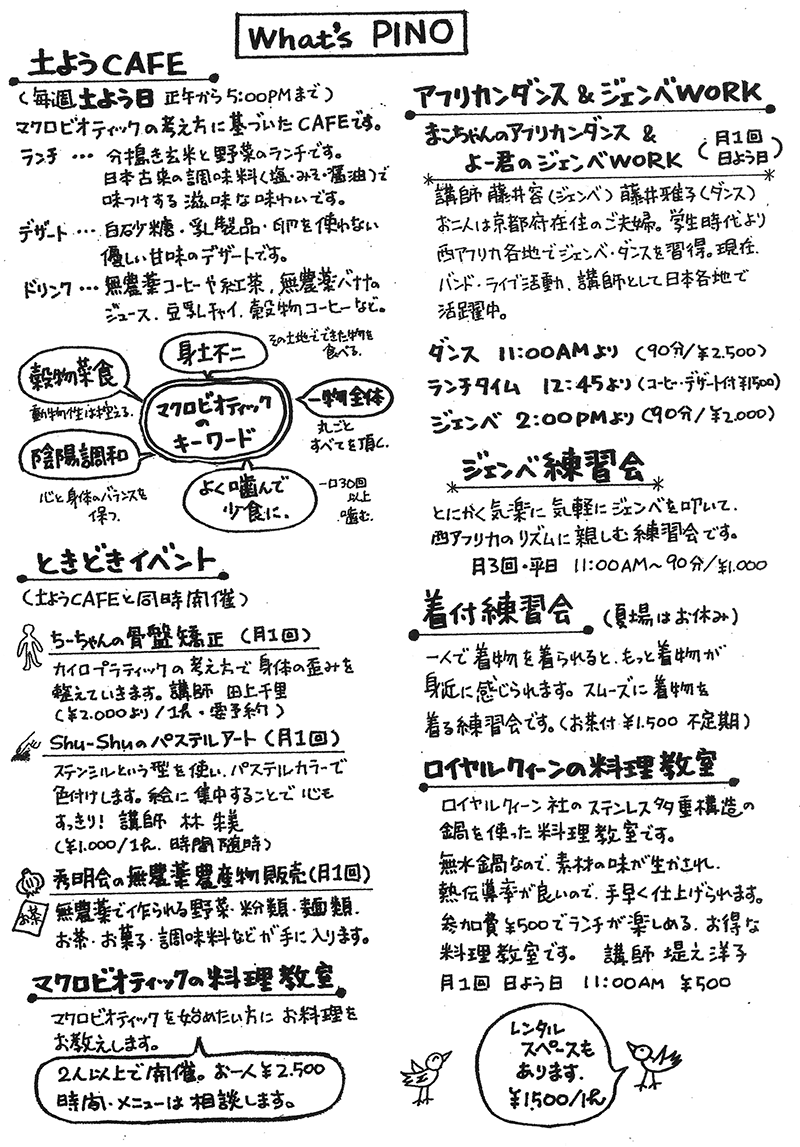 What's PINO
土ようCAFE
(毎週土よう日 正午から5:00PMまで)
マクロビオティックの考え方に基づいたCAFEです。
ランチ … 分搗き玄米と野菜のランチです。
日本古来の調味料(塩・みそ・醤油)で
味つけする滋味な味わいです。
デザート … 白砂糖・乳製品・卵を使わない
優しい甘味のデザートです。
ドリンク … 無農薬コーヒーや紅茶、無農薬バナナの
ジュース、豆乳チャイ、穀物コーヒーなど。
マクロビオティック
の
キーワード
身土不二
その土地でできた物を
食べる。
穀物菜食
動物性は控える。
一物全体
丸ごと
すべてを頂く。
陰陽調和
心と身体のバランスを
保つ。
よく噛んで
少食に。
一口30回
以上
噛む。
ときどきイベント
(土ようCAFEと同時開催)
ちーちゃんの骨盤矯正 (月1回)
カイロプラティックの考え方で身体の歪みを
整えていきます。講師 田上千里
(¥2.000より/1h・要予約)
Shu-Shuのパステルアート(月1回)
ステンシルという型を使い、パステルカラーで
色付けします。絵に集中することで心も
すっきり! 講師 林 朱美
(¥1.000/1h. 時間随時)
秀明会の無農薬農産物販売(月1回)
お茶
無農薬で作られる野菜・粉類・麺類・
お茶・お菓子・調味料などが手に入ります。
マクロビオティックの料理教室
マクロビオティックを始めたい方にお料理を
お教えします。
2人以上で開催。お一人¥2.500
時間・メニューは相談します。
アフリカンダンス&ジェンベWORK
まこちゃんのアフリカンダンス &
よー君のジェンベWORK (月1回 日よう日)
講師 藤井容(ジェンベ) 藤井雅子(ダンス)
お二人は京都府在住のご夫婦。学生時代より
西アフリカ各地でジェンベ・ダンスを習得。現在、
バンド・ライブ活動、講師として日本各地で
活躍中。
ダンス 11:00AMより (90分/¥2.500)
ランチタイム 12:45より(コーヒー・デザート付¥1500)
ジェンベ 2:00PMより(90分/¥2.000)
ジェンベ練習会
とにかく気楽に気軽にジェンベを叩いて、
西アフリカのリズムに親しむ練習会です。
月3回・平日 11:00AM~90分/¥1.000
着付練習会 (夏場はお休み)
一人で着物を着られると、もっと着物が
身近に感じられます。スムーズに着物を
着る練習会です。(お茶付¥1.500 不定期)
ロイヤルクィーンの料理教室
ロイヤルクィーン社のステンレス多重構造の
鍋を使った料理教室です。
無水鍋なので、素材の味が生かされ、
熱伝導率が良いので、手早く仕上げられます。
参加費¥500でランチが楽しめる、お得な
料理教室です。 講師 堤之洋子
月1回 日よう日 11:00AM ¥500
レンタル
スペースも
あります.
¥1.500/1h